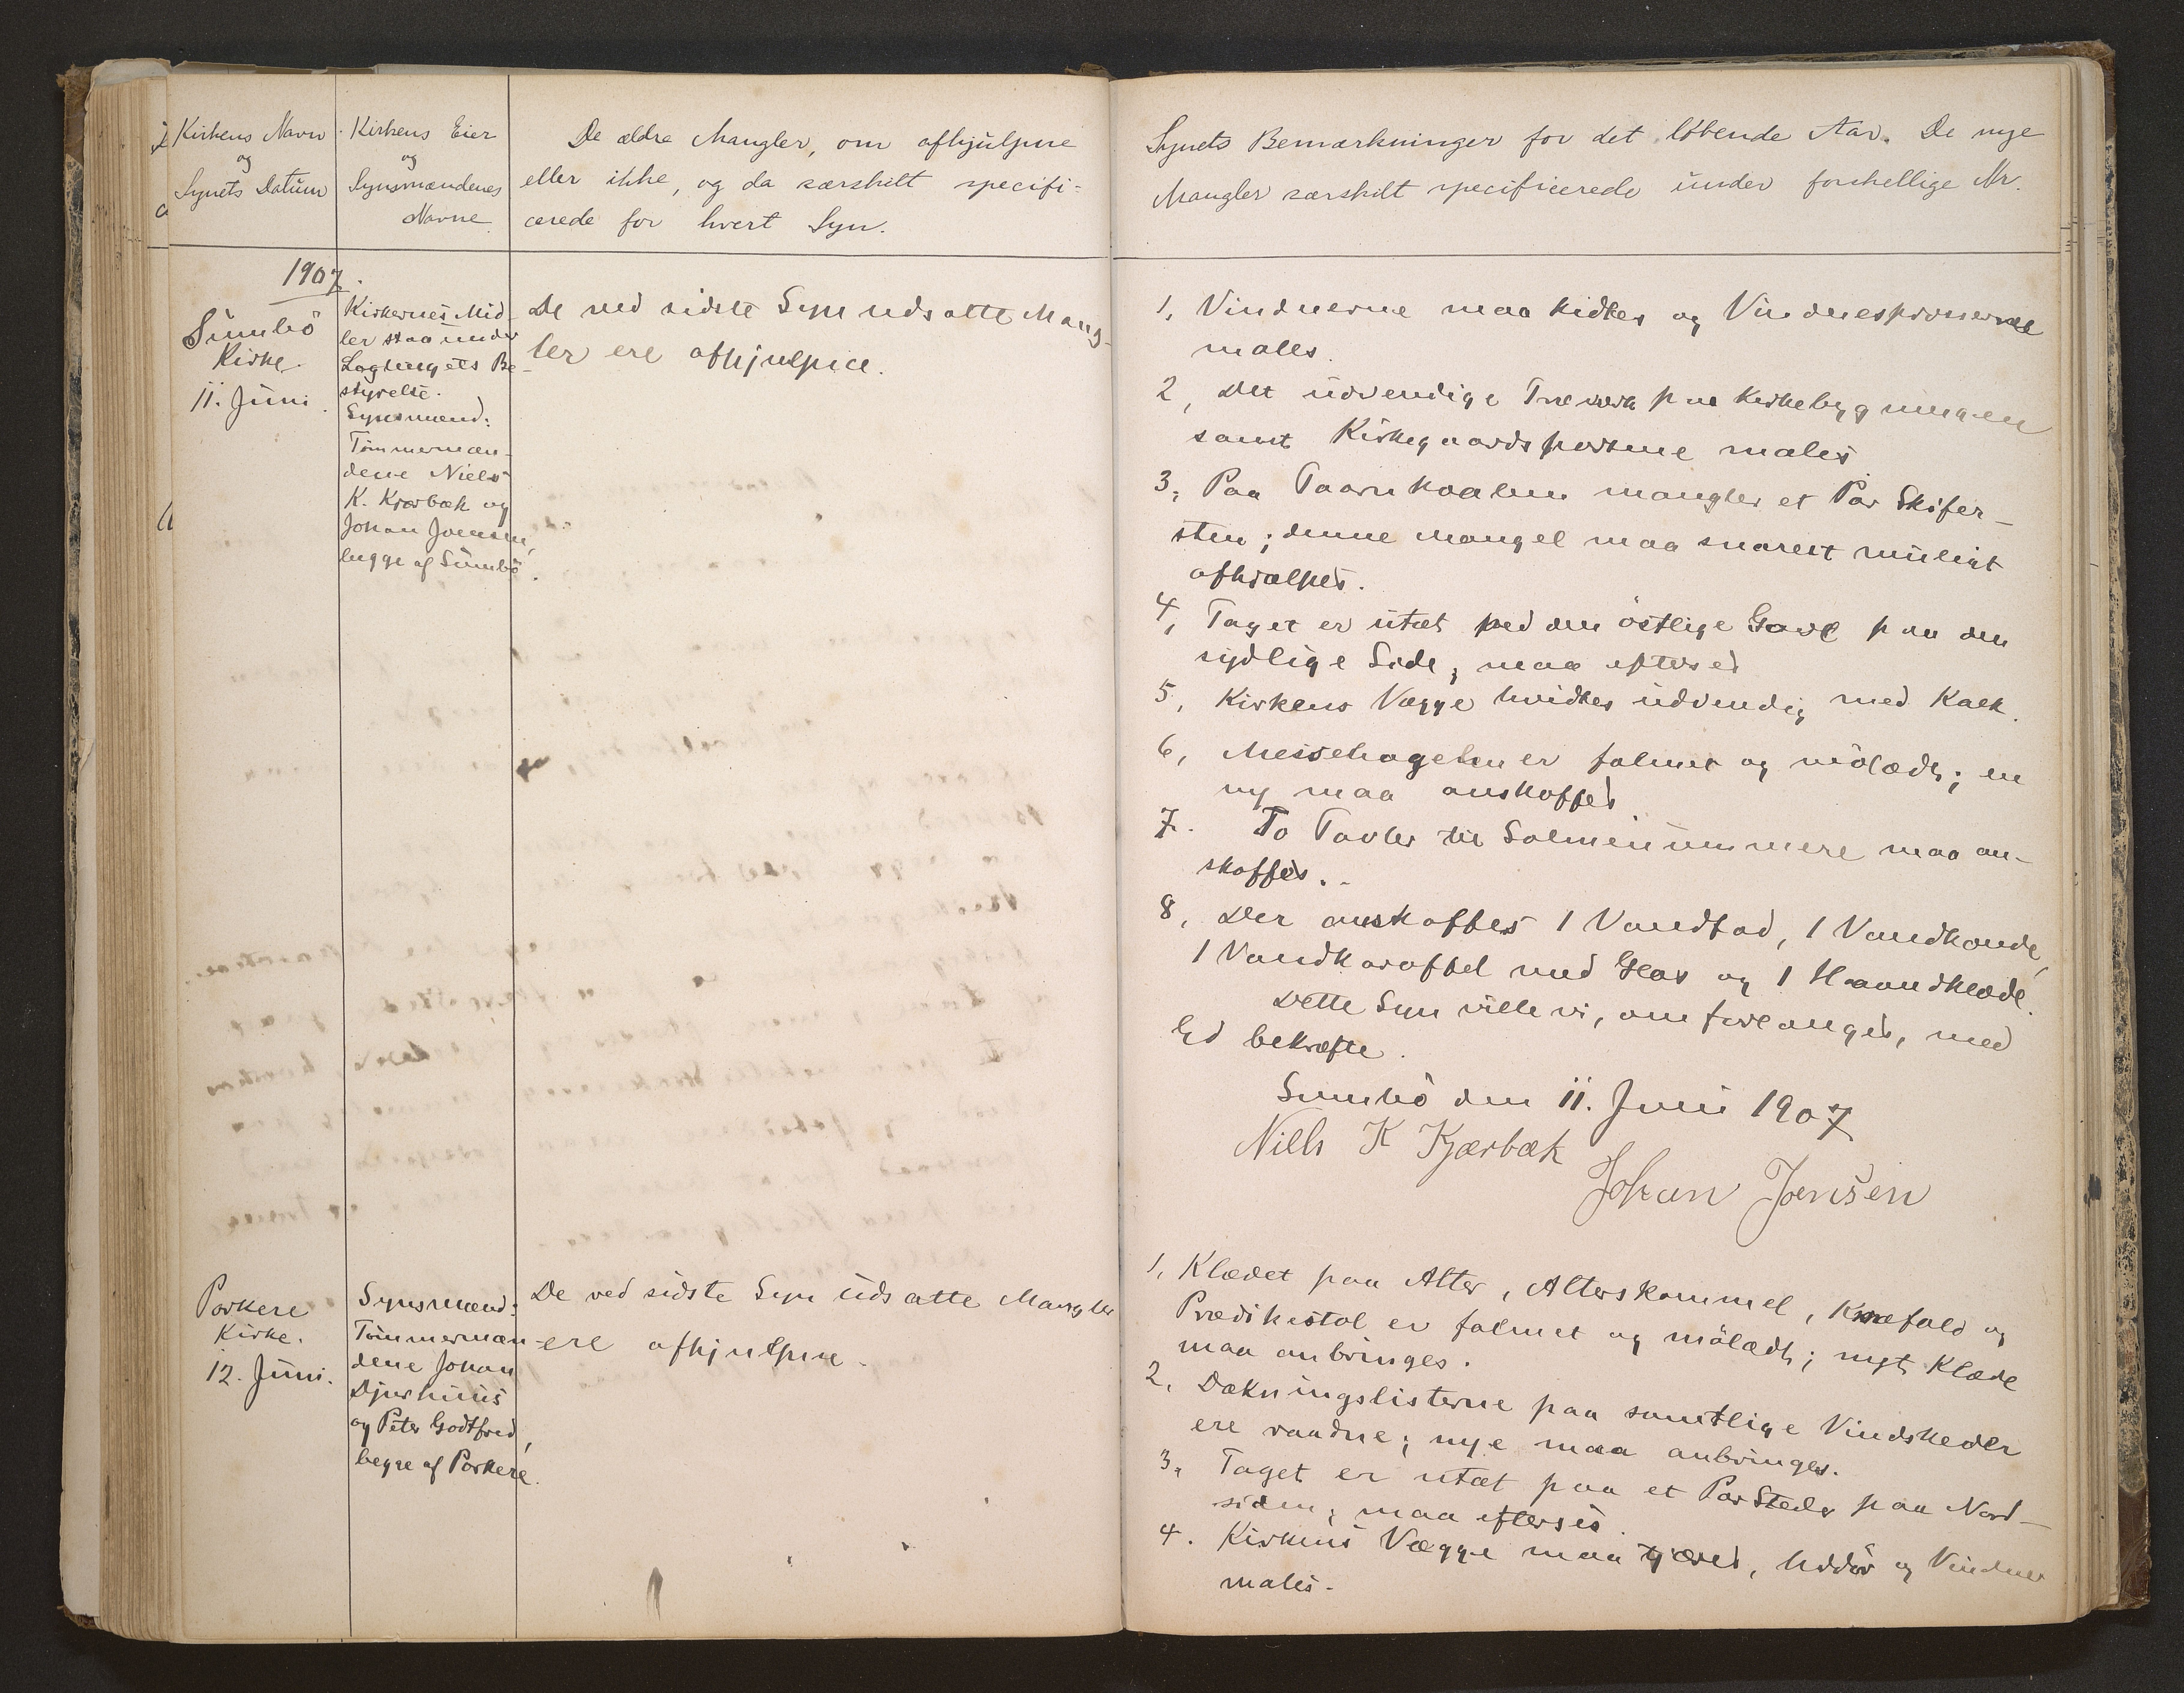 Kirkens Navn
og
Synets Datum
Kirkens Eier
og
Synsmændenes
Navne
De ældre Mangler, om afhjulpne
eller ikke, og da særskilt specifi-
cerede for hvert Syn.
1907.
Sumbö
Kirke
11. Juni.
Kirkernes Mid-
ler staa under
Lagtingets Be-
styrelse.
Synsmænd:
Tömmermæn-
dene Niels
K. Kjærbæk og
Johan Joensen,
begge af Sumbö.
De ved sidste Syn udsatte Mang-
ler ere afhjulpne.
Porkere
Kirke.
12. Juni.
Synsmænd:
Tömmermæn-
dene Johan
Djurhuus
og Peter Godtfred,
begge af Porkere.
De ved sidste Syn udsatte Mangler
ere afhjulpne.
Synets Bemærkninger for det löbende Aar. De nye
Mangler særskilt specificerede under forskellige Nr.
1, Vinduerne maa kidtes og Vinduesprosserne
males.
2, Det udvendige Træværk paa Kirkebygningen
samt Kirkegaardsportene males
3, Paa Taarnkvalmen mangler et Par Skifer-
sten; denne Mangel maa snarest muligt
afhjælpes.
4, Taget er utæt ved den östlige Gavl paa den
sydlige Side; maa efterses
5, Kirkens Vægge hvidtes udvendig med Kalk.
6, Messehagelen er falmet og mölædt; en
ny maa anskaffes
7. To Tavler til Salmenummere maa an-
skaffes.
8, Der anskaffes 1 Vandfad, 1 Vandkande,
1 Vandkaraffel med Glas og 1 Haandklæde.
Dette Syn ville vi, om forlanges, med
Ed bekræfte.
Sumbö den 11. Juni 1907
Niels K Kjærbæk
Johan Joensen
1, Klædet paa Alter, Alterskammel, Knæfald og
Prædikestol er falmet og mölædt; nyt Klæde
maa anbringes.
2, Dækningslisterne paa samtlige Vindskeder
ere raadne; nye maa anbringes.
3, Taget er utæt paa et Par Steder paa Nord-
siden; maa efterses.
4. Kirkens Vægge maa tjæres, Uddör og Vinduer
males.